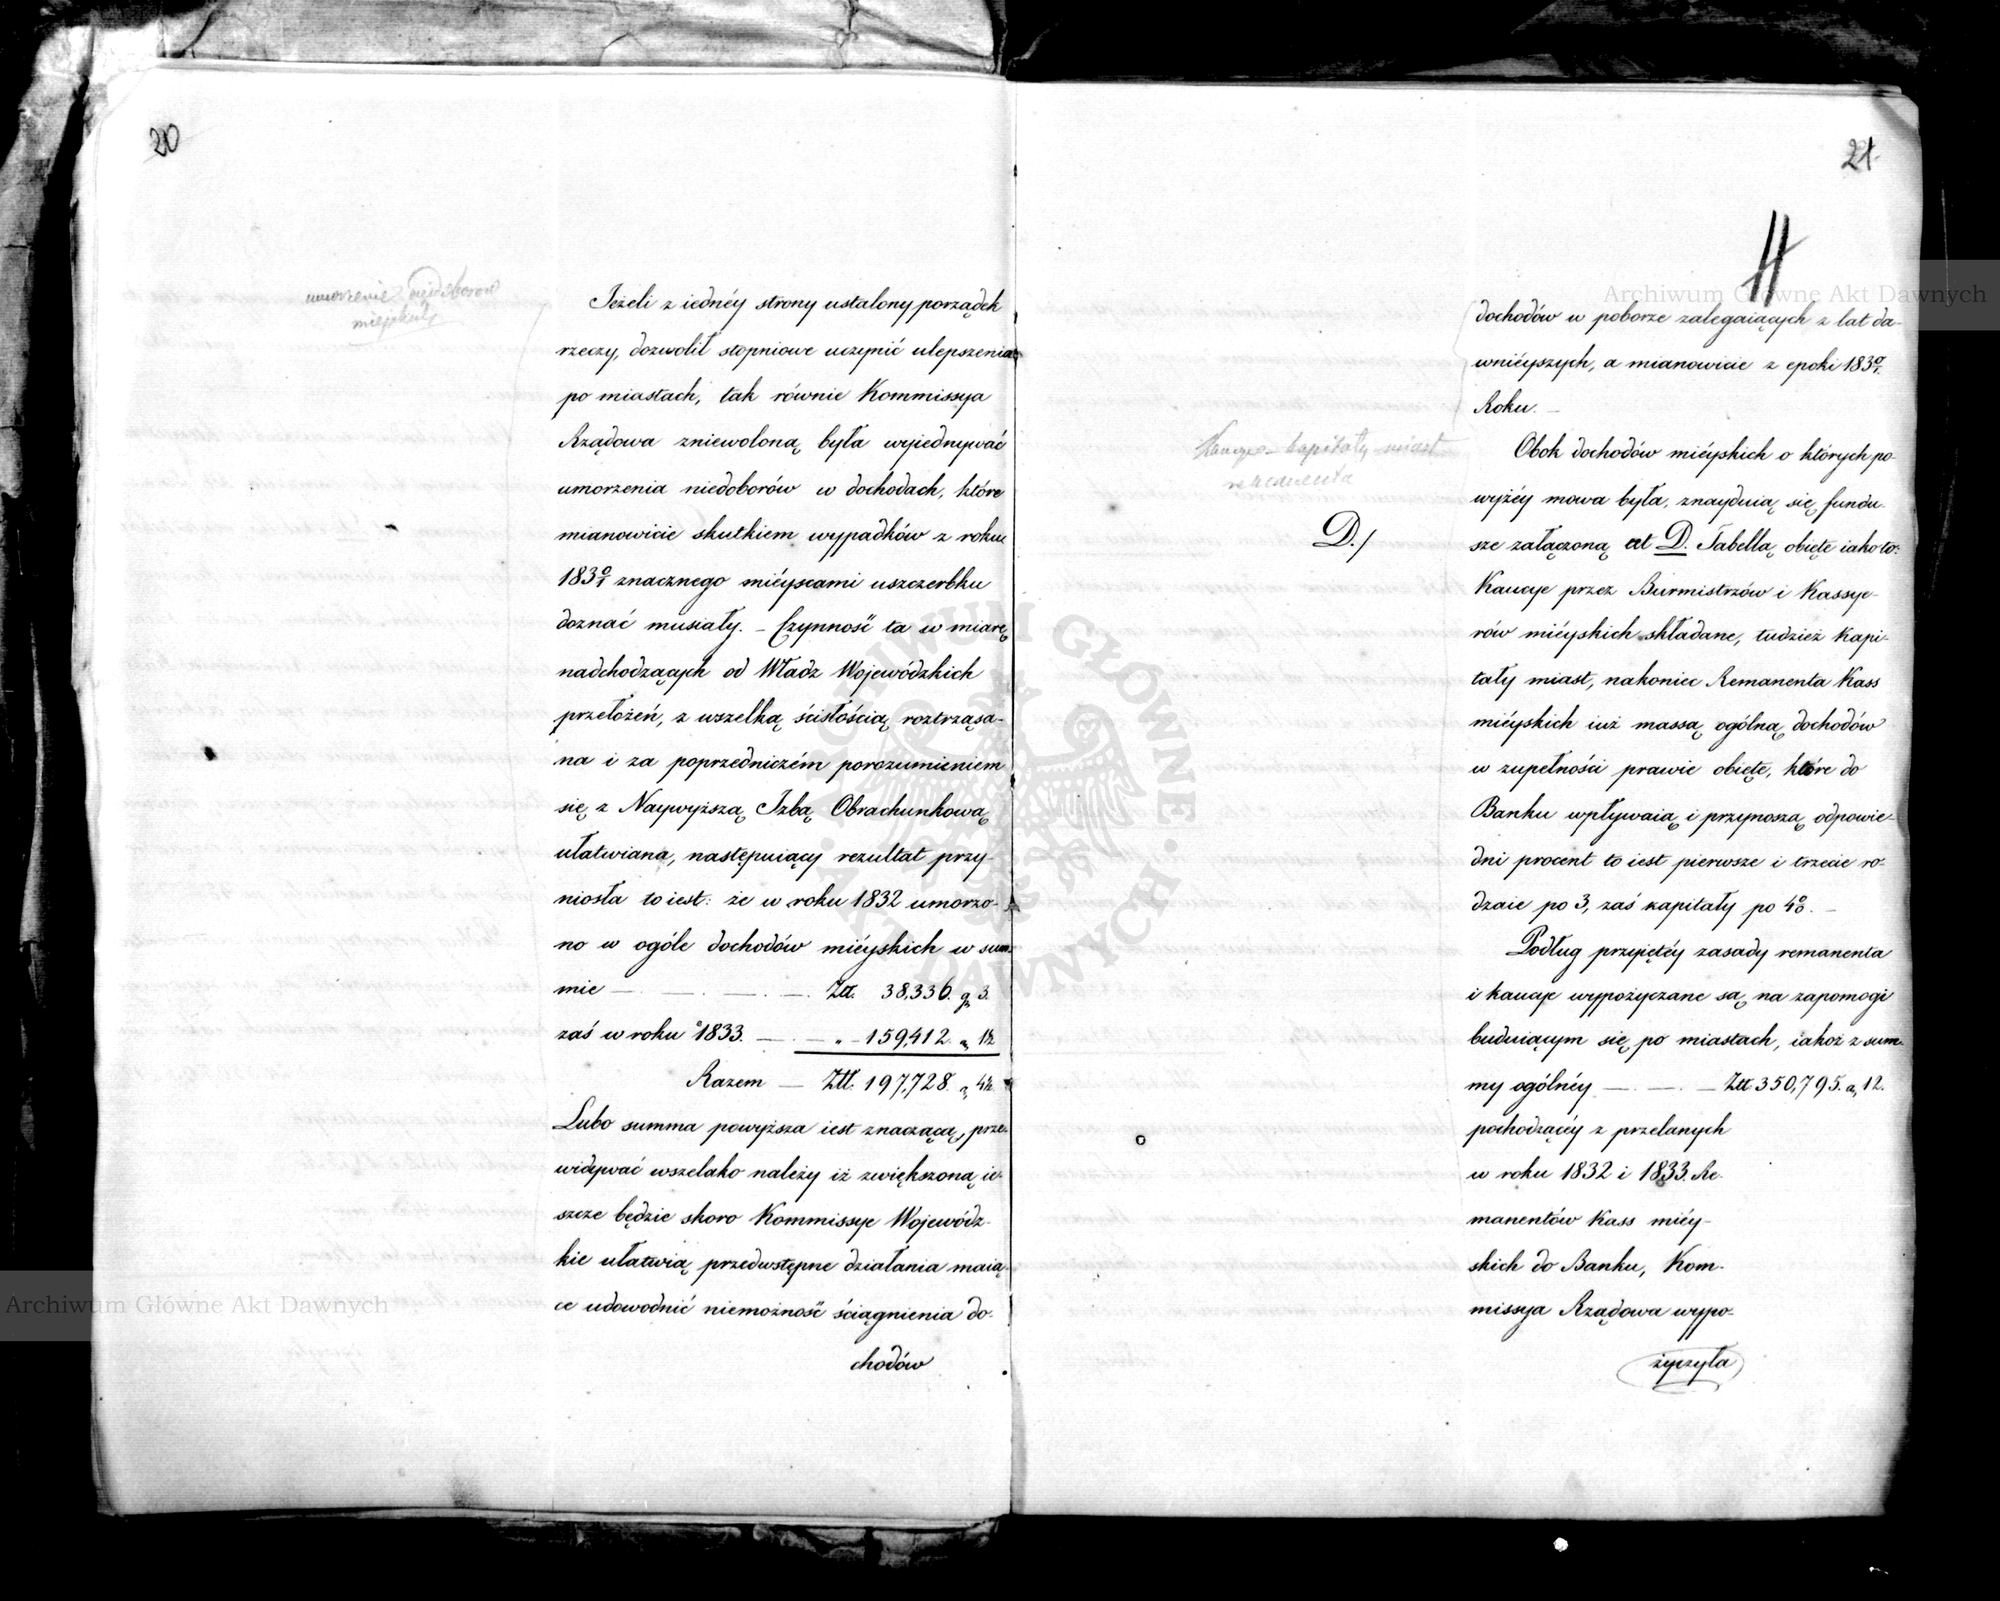 20
umorzenie niedoborów
miejskich
Jeżeli z iednéy strony ustalony porządek
rzeczy, dozwolił stopniowe uczynić ulepszenia
po miastach, tak równie Kommissya
Rządowa zniewoloną była wyjednywać
umorzenia niedoborów w dochodach, które
mianowicie skutkiem wypadków z roku
183 0/1 znacznego miéyscami uszczerbku
doznać musiały. – Czynność ta w miarę
nadchodzących od Władz Wojewódzkich
przełożeń, z wszelką ścisłością roztrząsa-
na i za poprzedniczém porozumieniem
się z Naywyższą Izbą Obrachunkową
ułatwiana, następuiący rezultat przy-
niosła to iest: że w roku 1832 umorzo-
no w ogóle dochodów miéyskich w sum-
mie — — — Złł. 38,336. g 3.
zaś w roku 1833. — — „ – 159,412. „ 1½
Razem — Złł. 197,728. „ 4½.
Lubo summa powyższa iest znaczącą, prze-
widywać wszelako należy iż zwiększoną ie-
szcze będzie skoro Kommissye Wojewódz-
kie ułatwią przedwstępne działania maią-
ce udowodnić niemożność ściągnienia do-
chodów
21
dochodów w poborze zalegaiących z lat da-
wniéyszych, a mianowicie z epoki 183 0/1.
Roku. –
Kaucye – kapitały miast
remanenta
D./
Obok dochodów miéyskich o których po-
wyżéy mowa była, znayduią się fundu-
sze załączoną at D. Tabellą obięte iako to:
Kaucye przez Burmistrzów i Kassye-
rów miéyskich składane, tudzież Kapi-
tały miast, nakoniec Remanenta Kass
miéyskich iuż massą ogólną dochodów
w zupełności prawie obięte, które do
Banku wpływaią i przynoszą odpowie-
dni procent to iest pierwsze i trzecie ro-
dzaie po 3, zaś kapitały po 4%. –
Podług przyiętéy zasady remanenta
i kaucye wypożyczane są na zapomogi
buduiącym się po miastach, iakoż z sum-
my ogólnéy — — — Złł 350,795. „ 12.
pochodzącéy z przelanych
w roku 1832 i 1833. Re-
manentów Kass miéy-
skich do Banku, Kom-
missya Rządowa wypo-
życzyła
Archiwum Główne Akt Dawnych
Archiwum Główne Akt Dawnych
ARCHIWUM GŁÓWNE AKT DAWNYCH